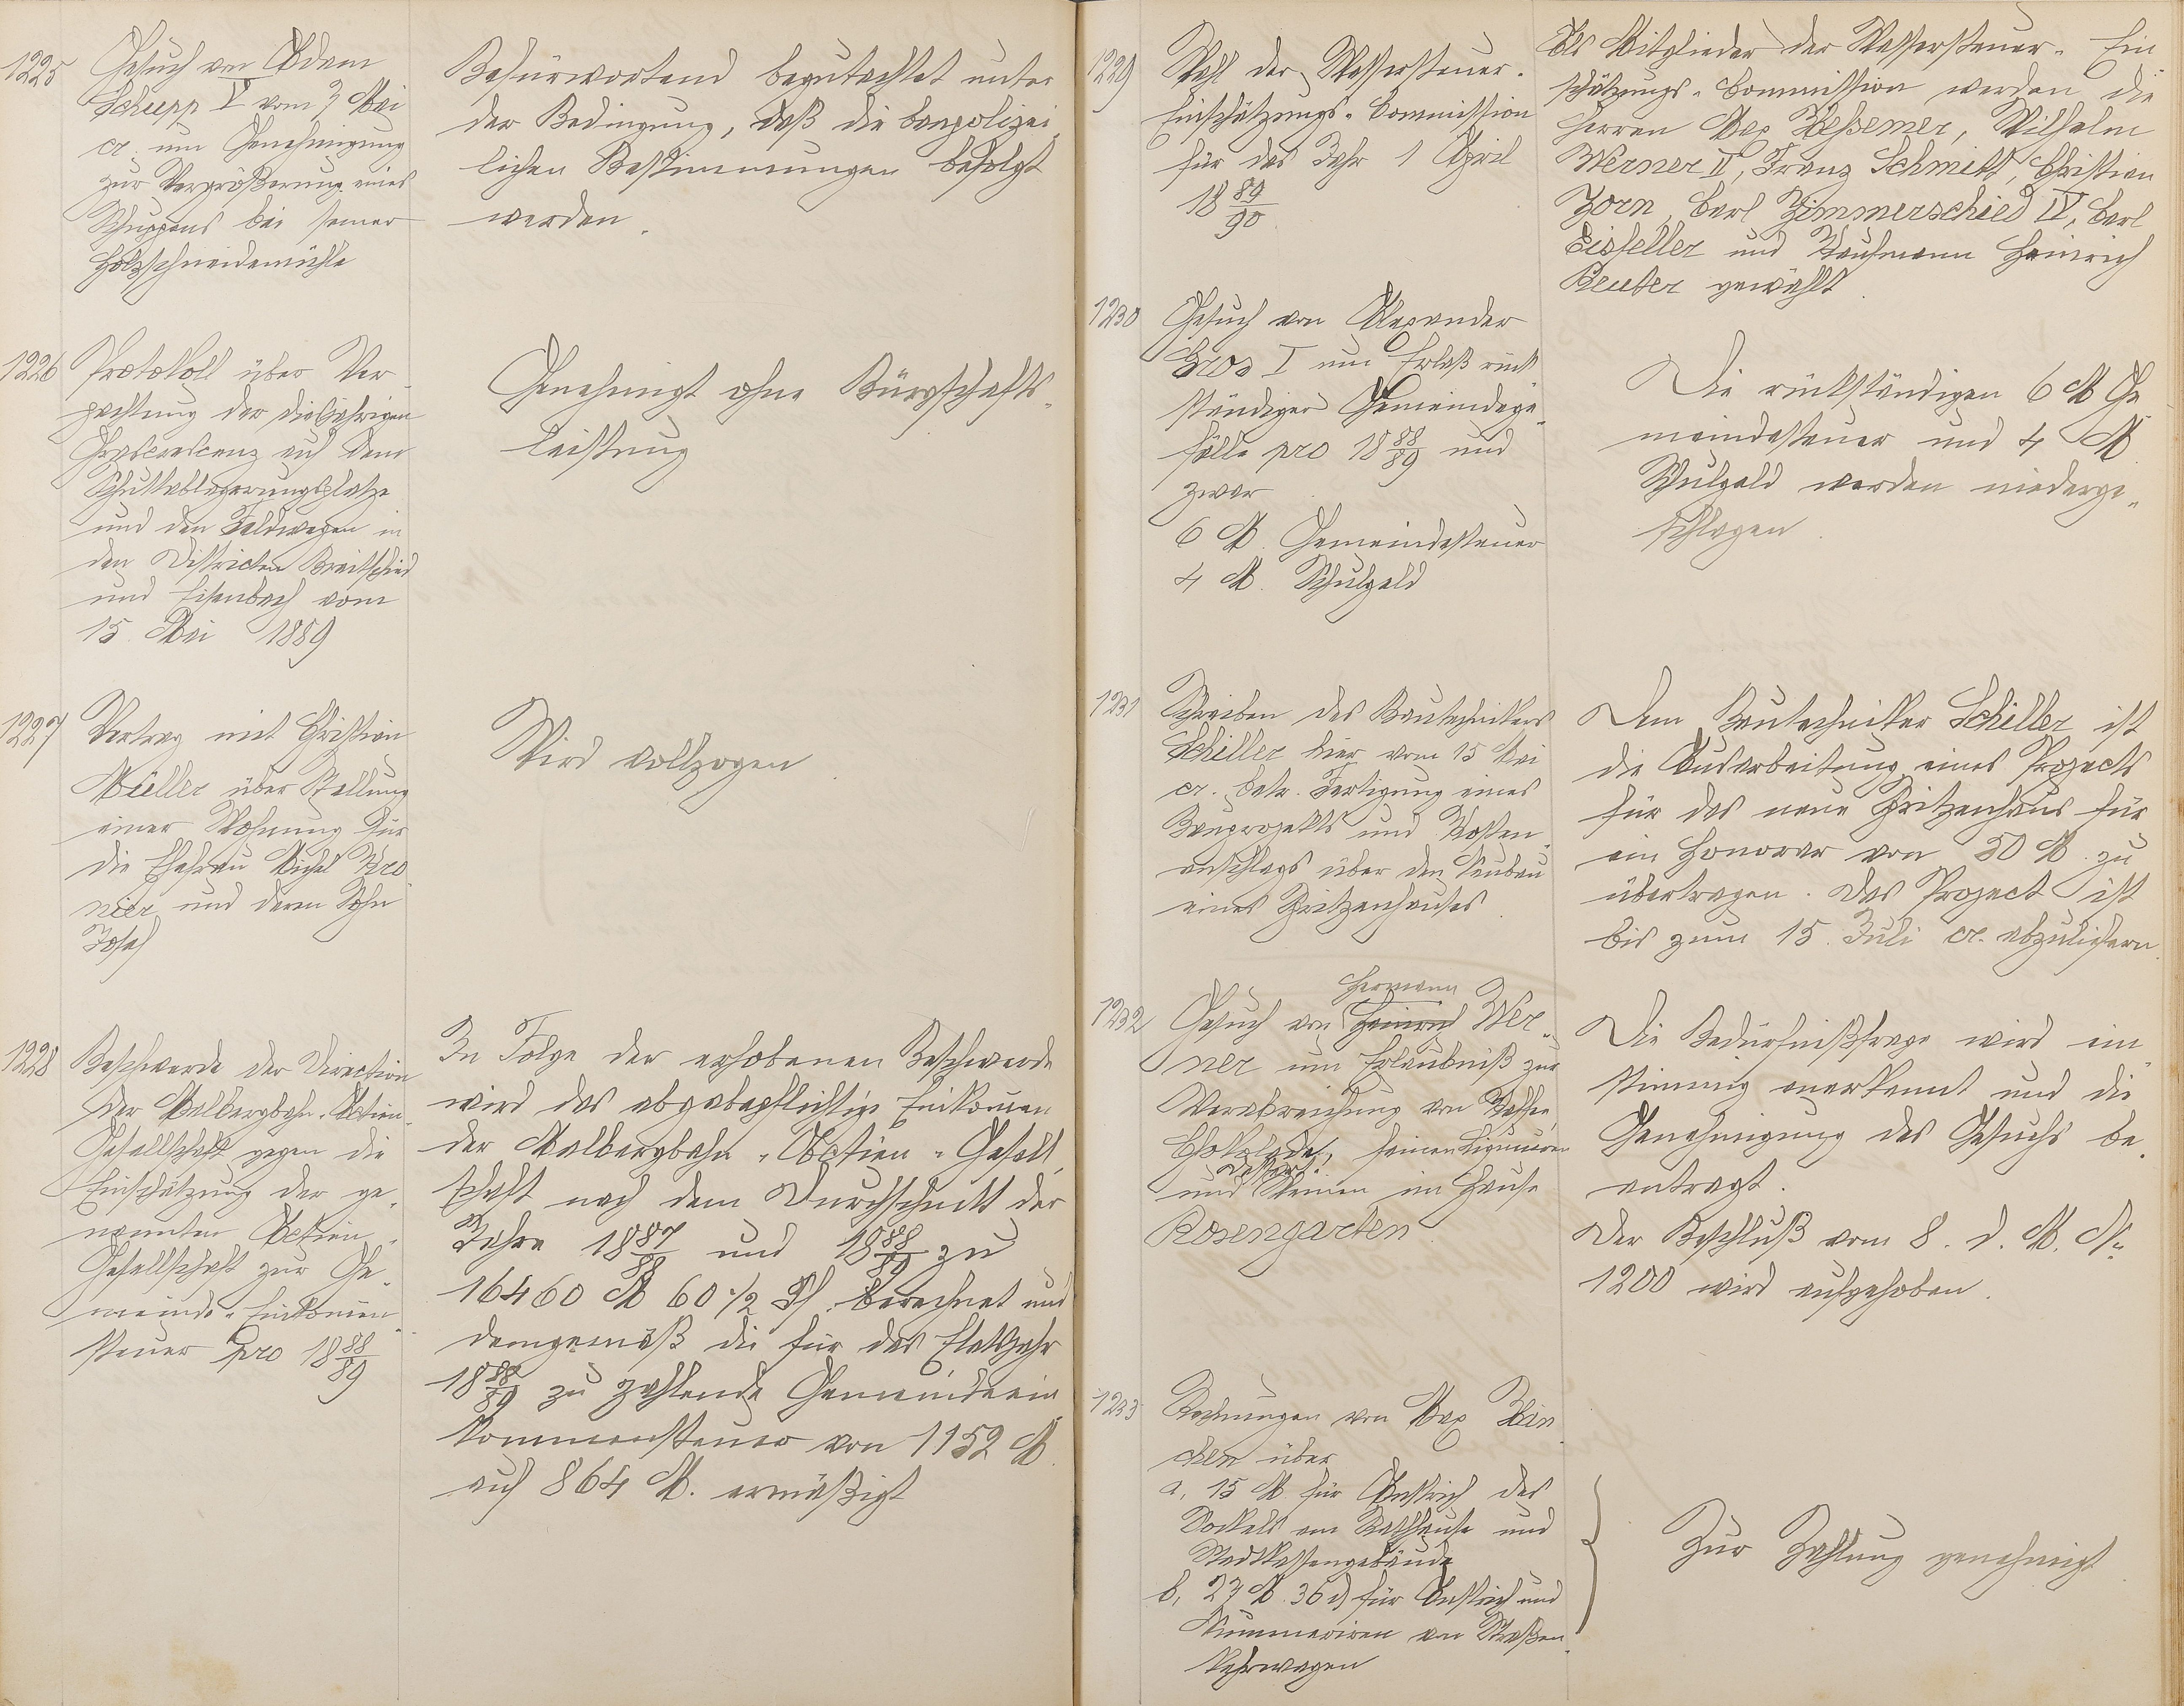 1225
Gesuch von Adam
Schupp V vom 7 Mai
cr. um Genehmigung
zur Vergrößerung eines
Schuppens bei seiner
Holzschneidemühle
Befürwortend begutachtet unter
der Bedingung, daß die baupolizei-
lichen Bestimmungen befolgt
werden.
1226
Protokoll über Ver-
pachtung der diesjährigen
Grascrescenz auf dem
Schuttablagerungsplatze
und den Feldwegen in
den Districten Breitschied
und Eisenbach vom
15. Mai 1889
Genehmigt ohne Bürgschafts-
leistung
1227
Vertrag mit Christian
Müller über Stellung
einer Wohnung für
die Ehefrau Michel Kro
nier und deren Sohn
Josef
Wird vollzogen
1228
Beschwerde der Direction
der Malbergbahn-Actien-
Gesellschaft gegen die
Einschätzung der ge-
nannten Actien-
Gesellschaft zur Ge-
meinde-Einkommen-
steuer pro 1888/89
In Folge der erhobenen Beschwerde
wird das abgabepflichtige Einkommen
der Malbergbahn-Actien-Gesell-
schaft nach dem Durchschnitt der
Jahre 1887/88 und 1888/89 zu
16460 M 60 1/2 Pf. berechnet und
demgemäß die für das Etatsjahr
1888/89 zu zahlende Gemeindeein
kommensteuer von 1152 M.
auf 864 M. ermäßigt
1229
Wahl der Wassersteuer-
Einschätzungs-Commission
für das Jahr 1 April
1889/90
Als Mitglieder der Wassersteuer-Ein
schätzungs-Commission werden die
Herren Max Bessemer, Wilhelm
Werner II, Franz Schmitt, Christian
Zorn, Carl Zimmerschied IV, Carl
Eisfeller und Kaufmann Heinrich
Reuter gewählt.
1230
Gesuch von Alexander
Gros I um Erlaß rück
ständiger Gemeindege-
fälle pro 1888/89 und
zwar
6 M. Gemeindesteuer
4 M. Schulgeld
Die rückständigen 6 M Ge
meindesteuer und 4 M
Schulgeld werden niederge-
schlagen.
1231
Schreiben des Bautechnikers
Schiller hier vom 15 Mai
cr. betr. Fertigung eines
Bauprojekts und Kosten-
anschlags über den Neubau
eines Spritzenhauses
Dem Bautechniker Schiller ist
die Ausarbeitung eines Projects
für das neue Spritzenhaus für
ein Honorar von 50 M. zu
übertragen. Das Project ist
bis zum 15. Juli cr. abzuliefern.
1232
Hermann
Gesuch von Heinrich Wer-
ner um Erlaubniß zur
Verabreichung von Kaffee,
Chokolade, feinen Liqueuren
Dessert
und Weinen im Hause
Rosengarten
Die Bedürfnißfrage wird ein
stimmig anerkannt und die
Genehmigung des Gesuchs be-
antragt.
Der Beschluß vom 8. d. M. No
1200 wird aufgehoben.
1233
Rechnungen von Max
über
a, 15 M für Anstrich des
Sockels am Rathhause und
Stadtkassengebäude
b, 27 M. 36 d für Anstrich und
Nummeriren von Straßen-
kehrwagen
Zur Zahlung genehmigt